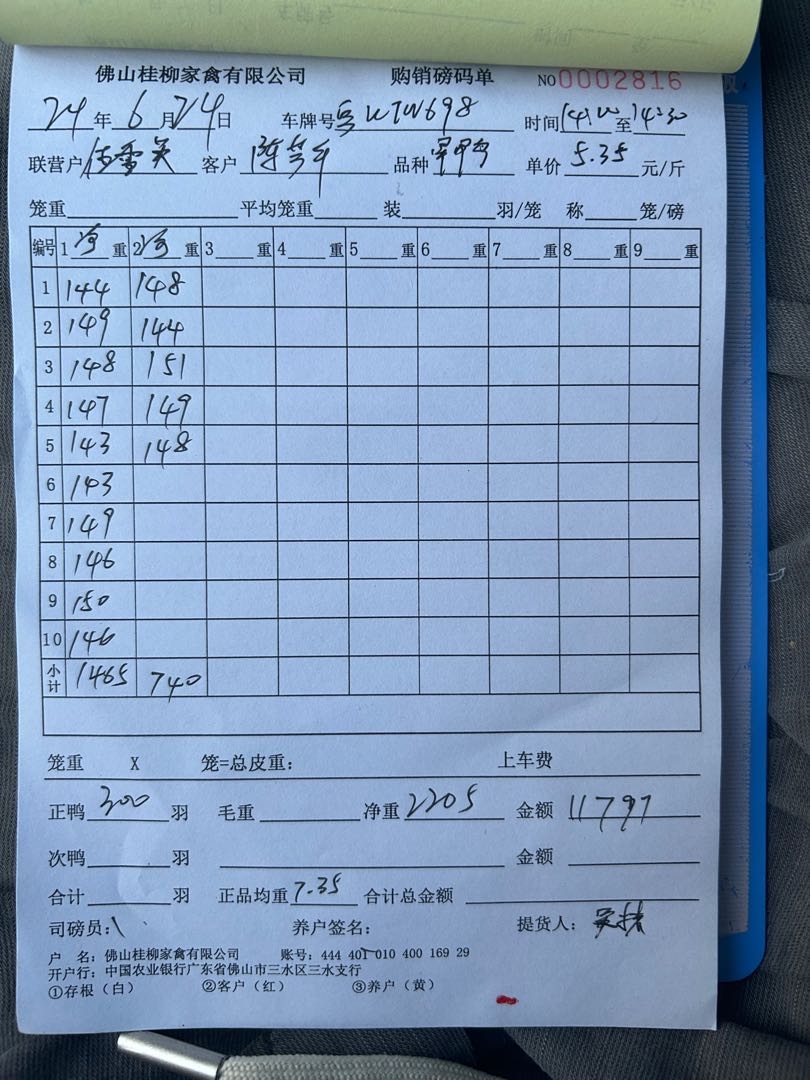 佛山桂柳家禽有限公司 购销磅码单 NO0002816
24年6月24日 车牌号粤WTW698 时间14:00至14:30
联营户 客户 品种 单价5.35元/斤
笼重 平均笼重 装 羽/笼 称 笼/磅
编号 1净重 2净重 3重 4重 5重 6重 7重 8重 9重
1 144 148
2 149 144
3 148 151
4 147 149
5 143 148
6 143
7 149
8 146
9 150
10 146
小计 1465 740
笼重 X 笼=总皮重: 上车费
正鸭300羽 毛重 净重2205 金额11797
次鸭 羽 金额
合计 羽 正品均重7.35 合计总金额
司磅员: 养户签名: 提货人:
户 名: 佛山桂柳家禽有限公司 账号: 444 401 010 400 169 29
开户行: 中国农业银行广东省佛山市三水区三水支行
①存根（白） ②客户（红） ③养户（黄）